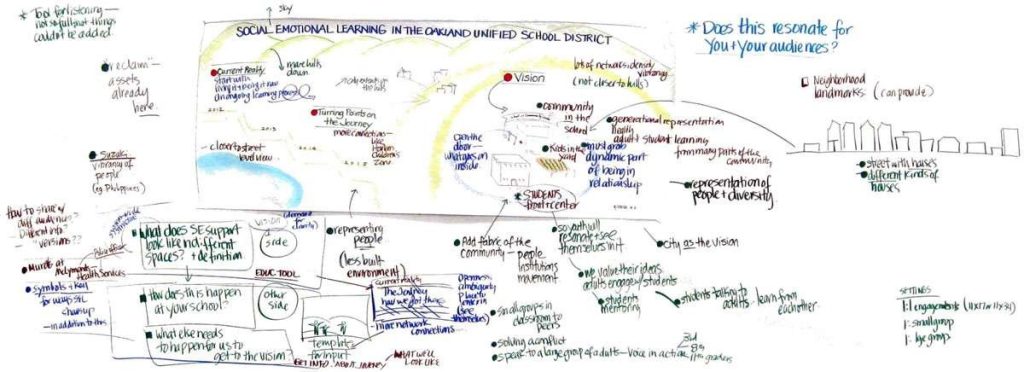 * Tool for listening —
not so full, not things
couldn't be added.
SKY
SOCIAL EMOTIONAL LEARNING IN THE OAKLAND UNIFIED SCHOOL DISTRICT
* Does this resonate for
You + Your audiences?
"reclaim" —
assets
already
here.
Current Reality
start with
living it + being it now
an ongoing learning process
move hills
down
Vision
lots of network, density
vibrancy
(not closer to hills)
Neighborhood
landmarks: (can provide)
2012
2013
Turning Points on
the Journey
more connection —
like
Harlem
Children's
Zone
community
in the
school
generational representation
health
adult + student learning
from many parts of the
community
— closer to street
level view —
open the
door —
what goes on
inside.
Kids in the
yard
must grab
dynamic part
of being in
relationship
* STUDENTS
front + center
representation of
people + diversity
street with houses
different kinds of
houses
Suzuki
vibrancy of
people
(eg. Philippines)
How to share w/
diff audiences?
Different info?
"versions"??
What does SE support
look like in different
spaces? + definition
VISION
(demand for
clarity)
Side
representing
people
(less built
environment)
Add fabric of the
community — people
institutions
movement
so youth will
resonate + see
themselves in it
City as the Vision
Mural at
Highmont
Health Services
EDUC. TOOL
symbols + key
for ways SEL
shows up
— in addition to this
How does this happen
at your school?
Other
side
current reality
The Journey
how we got here
— more network
connections —
Openness
ambiguity
place to
enter in
(see
themselves)
we value their ideas
adults engage w/ students
students
mentoring
students talking to
adults - learn from
each other
What else needs
to happen for us to
get to the vision?
template
for input
GET INFO. ABOUT JOURNEY
WHAT WE'LL
LOOK LIKE
small groups in
classroom to
peers
solving a conflict
speak to a large group of adults — voice in action
3rd
8th
11th graders
SETTINGS
1:1 engagements (11x17 or 11x34)
1: small group
1: lge group